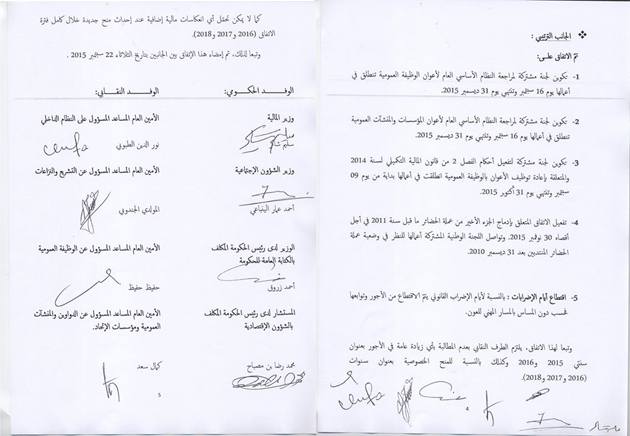 ❖ الجانب الترتيبي :
تمّ الاتفاق على:
1- تكوين لجنة مشتركة لمراجعة النظام الأساسي العام لأعوان الوظيفة العمومية تنطلق في
أعمالها يوم 16 سبتمبر وتنتهي يوم 31 ديسمبر 2015.
2- تكوين لجنة مشتركة لمراجعة النظام الأساسي العام لأعوان المؤسسات والمنشآت العمومية
تنطلق في أعمالها يوم 16 سبتمبر وتنتهي يوم 31 ديسمبر 2015.
3- تكوين لجنة مشتركة لتفعيل أحكام الفصل 2 من قانون المالية التكميلي لسنة 2014
والمتعلقة بإعادة توظيف الأعوان بالوظيفة العمومية انطلقت في أعمالها بداية من يوم 09
سبتمبر وتنتهي يوم 31 أكتوبر 2015.
4- تفعيل الاتفاق المتعلق بإدماج الجزء الأخير من عملة الحضائر ما قبل سنة 2011 في أجل
أقصاه 30 نوفمبر 2015. وتواصل اللجنة الوطنية المشتركة أعمالها للنظر في وضعية عملة
الحضائر المنتدبين بعد 31 ديسمبر 2010.
5- اقتطاع أيام الإضرابات : بالنسبة لأيام الإضراب القانوني يتمّ الاقتطاع من الأجور وتوابعها
فحسب دون المساس بالمسار المهني للعون.
وتبعا لهذا الاتفاق، يلتزم الطرف النقابي بعدم المطالبة بأي زيادة عامة في الأجور بعنوان
سنتي 2015 و2016 وكذلك بالنسبة للمنح الخصوصية بعنوان سنوات
(2016 و2017 و2018).
كما لا يمكن تحمّل أي انعكاسات مالية إضافية عند إحداث منح جديدة خلال كامل فترة
الاتفاق (2016 و2017 و2018).
وتبعا لذلك، تم إمضاء هذا الإتفاق بين الجانبين بتاريخ الثلاثاء 22 سبتمبر 2015 .
الوفد الحكومي:
الوفد النقابي:
وزير المالية
الأمين العام المساعد المسؤول على النظام الداخلي
سليم شاكر
نور الدين الطبوبي
وزير الشؤون الإجتماعية
الأمين العام المساعد المسؤول عن التشريع والنزاعات
أحمد عمار الينباعي
المولدي الجندوبي
الوزير لدى رئيس الحكومة المكلف
بالكتابة العامة للحكومة
الأمين العام المساعد المسؤول عن الوظيفة العمومية
أحمد زروق
حفيظ حفيظ
المستشار لدى رئيس الحكومة المكلف
بالشؤون الإقتصادية
الأمين العام المساعد المسؤول عن الدواوين والمنشآت
العمومية ومؤسسات الإتحاد.
محمد رضا بن مصباح
كمال سعد
5